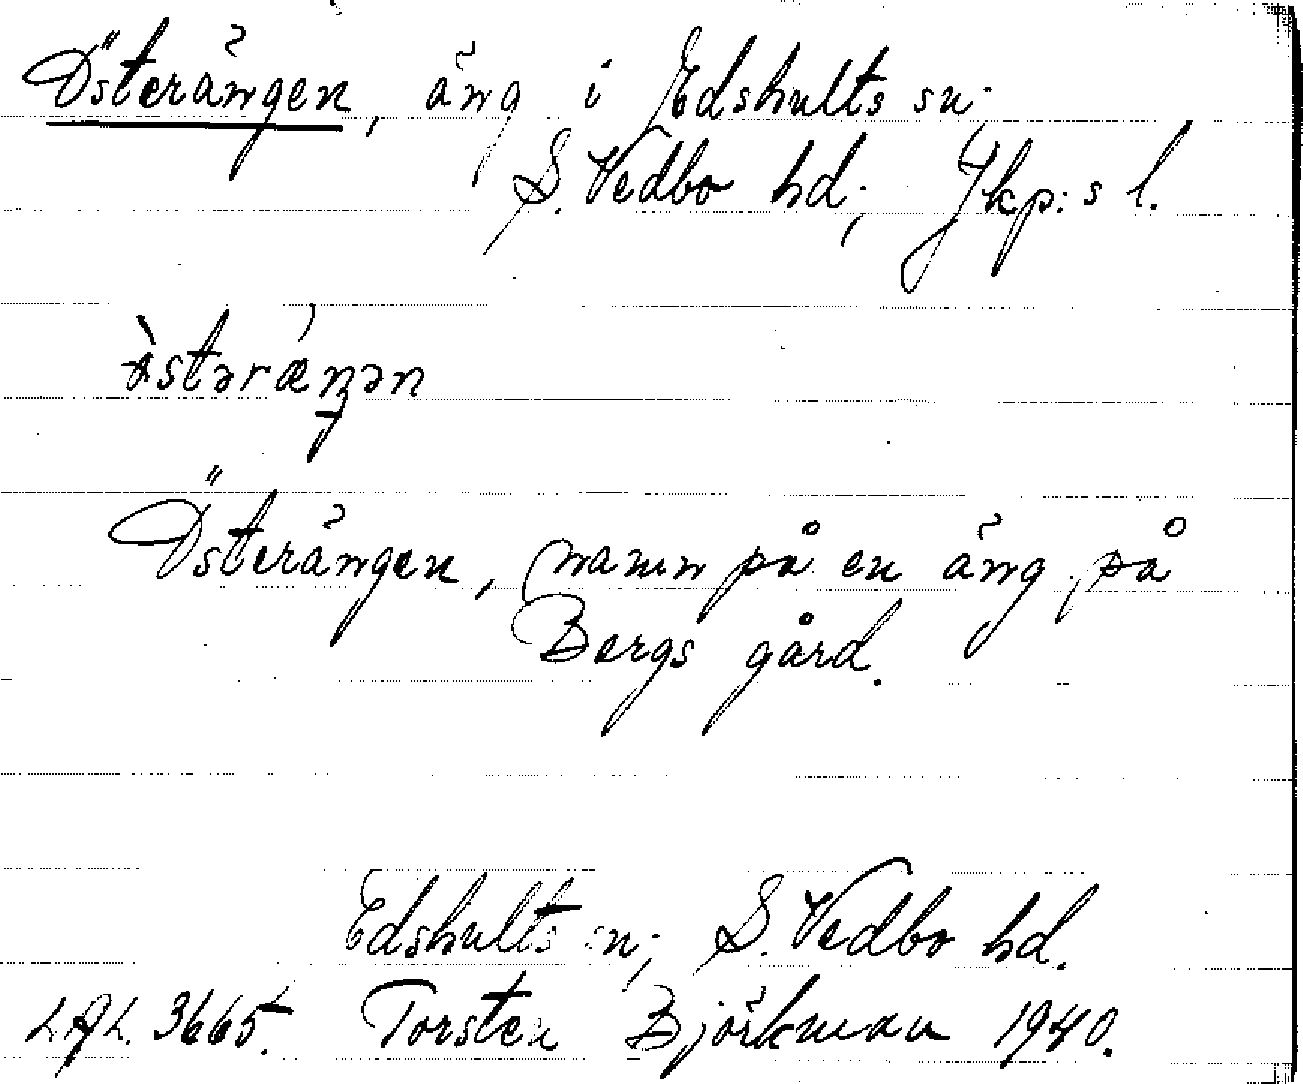 Österängen, äng i Edshults sn.
S. Vedbo hd; Jkp:s l.
Österängen, namn på en äng på
Bergs gård.
Edshults sn; S. Vedbo hd.
LAL. 3665. Torsten Björkman 1940.